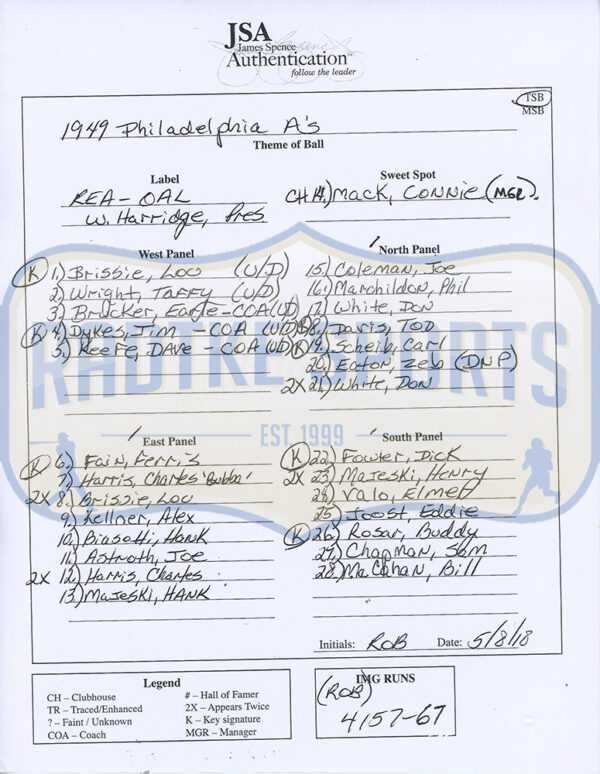 JSA
James Spence
Authentication™
follow the leader
TSB
MSB
1949 Philadelphia A's
Theme of Ball
Label
REA-OAL
W. Harridge, Pres
Sweet Spot
CH 14.) Mack, Connie (MGR).
West Panel
K 1.) Brissie, Lou (U/D)
2.) Wright, Taffy (U/D)
3.) Brucker, Earle-COA (U/D)
K 4.) Dykes, Jim - COA (U/D)
5.) Keefe, Dave - COA (U/D)
North Panel
15.) Coleman, Joe
16.) Marchildon, Phil
17.) White, Don
18.) Davis, Tod
K 19.) Scheib, Carl
20.) Eaton, Zeb (DNP)
2X 21.) White, Don
RADTKE SPORTS
EST. 1999
East Panel
K 6.) Fain, Ferris
7.) Harris, Charles 'Bubba'
2X 8.) Brissie, Lou
9.) Kellner, Alex
10.) Biasatti, Hank
11.) Astroth, Joe
2X 12.) Harris, Charles
13.) Majeski, Hank
South Panel
K 22.) Fowler, Dick
2X 23.) Majeski, Henry
24.) Valo, Elmer
25.) Joost, Eddie
K 26.) Rosar, Buddy
27.) Chapman, Sam
28.) McCahan, Bill
Initials: ROB Date: 5/8/18
Legend
CH – Clubhouse
TR – Traced/Enhanced
? – Faint / Unknown
COA – Coach
# – Hall of Famer
2X – Appears Twice
K – Key signature
MGR – Manager
IMG RUNS
(ROB)
4157-67